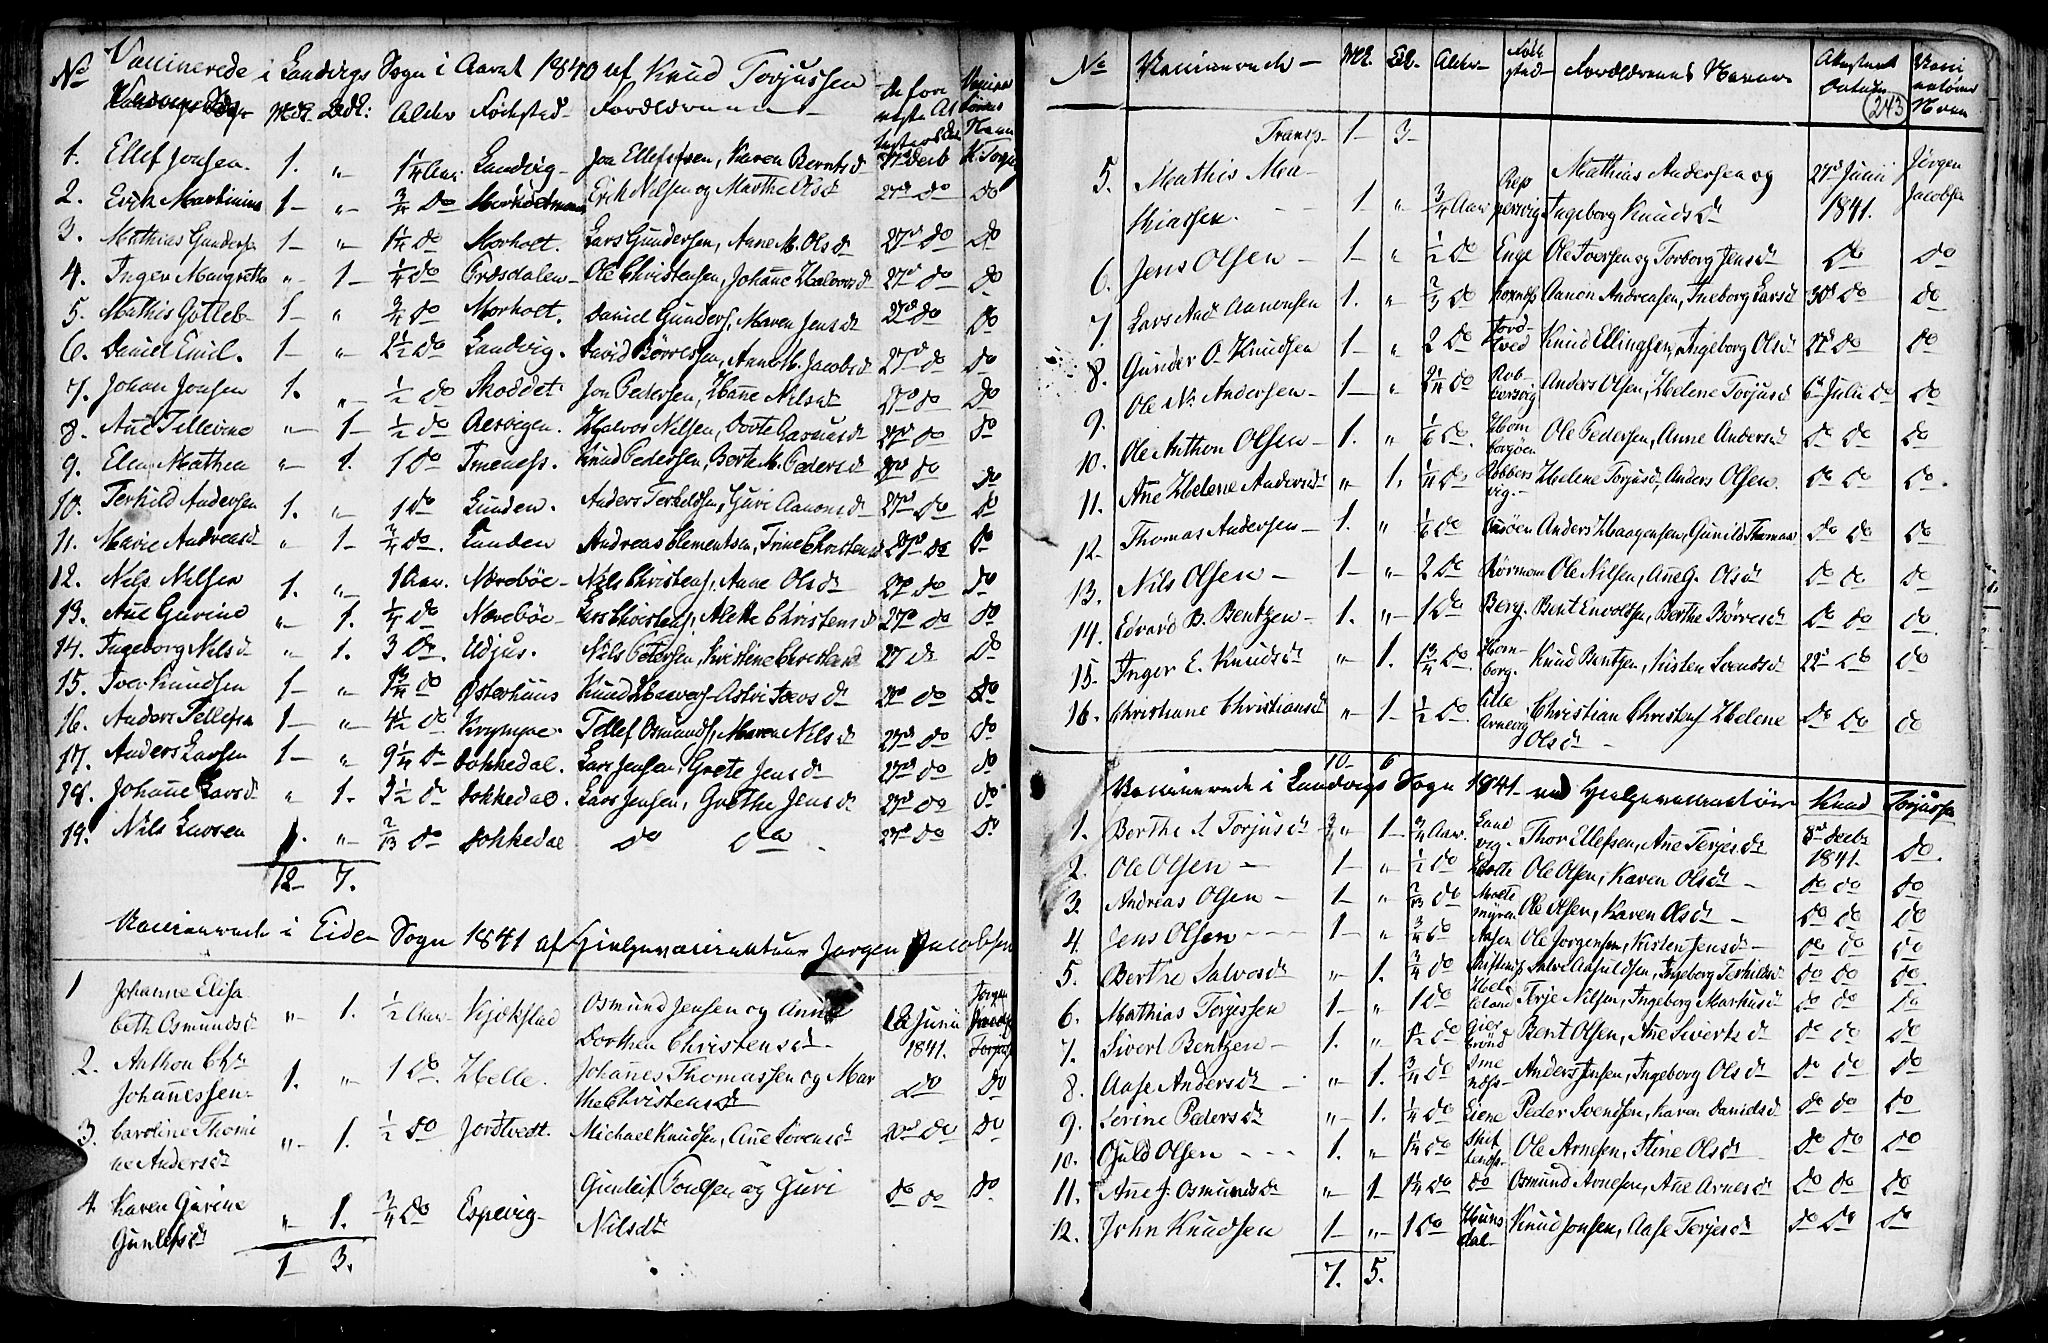 Vaccinerede i Landvigs Sogn i Aaret 1840 af Knud Torjussen
No Mdk. Qdk: Alder Fødested Forældrene
1. Ellef Jonsen. 1. „ 1¼ Aar Landvig Jon Ellefsen, Karen Berntsd 27d Decb K. Torju
2. Erich Martinius 1 „ ¾ do Erich Nilsen og Marthe Olsd 27d do do
3. Mathias Gundersen 1 „ 1¼ do Morholt. Lars Gundersen, Anne M. Olsd 27d do do
4. Inger Margrethe „ 1 ¼ do Grøsdalen Ole Christensen, Johanne Halvorsd 27d do do
5. Mathis Gotleb 1 „ ¾ do Morholt. Daniel Gunders, Maren Jensd 27d do do
6. Daniel Emil. 1 „ 2½ do Landvig. David Børresen, Anne M. Jacobsd 27d do do
7. Johan Jonsen 1. „ ½ do Skoddet Jon Pedersen, Hanne Nilsd 27d do do
8. Ane Tellevine „ 1 ½ do Rervigen. Halvor Nilsen, Dorte 27d do do
9. Elen Mathea „ 1. 1 do Imenes. Knud Pedersen, Berte M. Pedersd 27d do do
10. Terkild Andersen 1. „ 1 do Lunden. Anders Terkeldsen, Guri Aanonsd 27d do do
11. Marie Andreasd „ 1 ¾ do. Landen Andreas Clementsen, Trine Christensd 27d do do
12. Nils Nilsen 1. „ 1 Aar. Nørebøe Nils Christens, Anne Olsd 27d do do
13. Ane Gurine „ 1. ¼ do Nørebøe Lars Christens, Alette Christensd 27d do do
14. Ingeborg Nilsd „ 1. 3 do. Udjus. Nils Petersen, Kirstine Christensd 27 do do
15. Iver Knudsen 1 „ 1¾ do Østerhuus Knud Halvors Astri Iversd 27d do do
16. Anders Tellefsen 1 „ 4½ do Krympe. Tellef Osmunds, Maren Nilsd 27d do do
17. Anders Larsen 1 „ 9¼ do Dokkedal. Lars Jensen, Grete Jensd 27d do do
18. Johanne Larsd „ 1. 3½ do Dokkedal. Lars Jensen, Grethe Jensd 27d do do
19. Nils Larsen 1. „ do Dokkedal do do 27d do do
12 7.
Vaccinerede i Eide Sogn 1841 af Hjelpevaccinateur Jørgen Jacobsen
1 Johanne Elisa
beth Osmundsd „ 1. ½ Aar Kjøkstad Osmund Jensen og Anne
Dorthea Christensd Junii 1841.
2. Anthon Chr
Johannessen 1. „ 1 do. Helle. Johannes Thomassen og Mar
the Christensd do do
3. Caroline Thomi
ne Andersd „ 1. ½ do Jortvedt. Michael Knudsen, Ane Sørensd 20d do do
4. Karen Gurine
Gunlefsd „ 1. ¾ do Espevig Gunleif Toresen og Guri
Nilsd do do do
1 3.
No Vaccinerede Mk. Qk. Alder Føde
sted Forældrenes Navne Attestens
Datum Vacci
natørens
Navn
243
Transp. 1 3
5. Mathis Ma
thiassen. 1 „ ¾ Aar Rep
persvig Mathias Andersen og
Ingeborg Knudsd 27d Junii
1841. Jørgen
Jacobsen
6. Jens Olsen 1 „ ½ do Enge Ole Iversen og Torborg Jensd do do
7. Lars And Aanonsen 1. „ ¾ do Aanon Andreasen, Ingeborg Larsd 30d do do
8. Gunder O. Knudsen 1 „ 2 do Jord
tved Knud Ellingsen, Ingeborg Olsd 27d do do
9. Ole N. Andersen 1 „ 2¼ do Rob
bersvig Anders Olsen, Helene Torjusd 6d Julii do do
10. Ole Anthon Olsen 1. „ ⅙ do. Hom
borøen Ole Pedersen, Anne Andersd do do do
11. Ane Helene Andersd „ 1. ¼ do Robbers
vig. Helene Torjusd, Anders Olsen. do do do.
12 Thomas Andersen 1. „ ⅙ do Anders Haagensen, Gunild Thomas do do do
13. Nils Olsen 1 „ 2 do Ole Nilsen, Ane G. Olsd do do do
14. Edvard B. Bentzen 1. „ 1 do Berg. Bent Envoldsen, Berthe Børresd do do do
15. Inger E. Knudsd „ 1. 1¾ do. Hom
borg. Knud Bentzen, Kisten Svendsd 22d do do
16. Christiane Christiansd „ 1 ½ do. Lille
Arnevig Christian Christens Helene
Olsd do do do
10 6
Vaccinerede i Landvigs Sogn 1841 ved Hjelpevaccinatør Knud Torjussen
1. Berthe A Torjusd „ 1 ¾ Aar. Land
vig. Thor Ellefsen, Ane Terjesd 8d Decbr
1841. do.
2. Ole Olsen 1 „ ½ do Ole Olsen, Karen Olsd do do do
3. Andreas Olsen 1 „ do Molte
myren Ole Olsen, Karen Olsd do do do
4. Jens Olsen 1 „ ¾ do Aasen Ole Jørgensen, Kisten Jensd do do do
5. Berthe Salvesd „ 1. ¾ do Salve Aasuldsen, Ingeborg Terkildsd do do do
6. Mathias Terjesen 1 „ 1 do Terje Nilsen, Ingeborg Markusd do do do
7. Sivert Bentzen 1. „ 1½ do Gier
brønd Bent Olsen, Ane Sivertsd do do do
8. Aase Andersd „ 1. ¾ do Ime
næs Anders Jensen, Ingeborg Olsd do do do
9. Serine Pedersd „ 1. ¼ do Eiene Peder Svendsen, Karen Danielsd do do do
10. Guld Olsen 1. „ 1¼ do Skif
tenes Ole Arnesen, Stine Olsd do do do
11. Ane J. Osmundsd „ 1 1¼ do do Osmund Arnesen, Ane Arnesd do do do
12. John Knudsen 1 „ 1 do Huns
dal Knud Jonsen, Aase Terjesd do do do
7. 5.